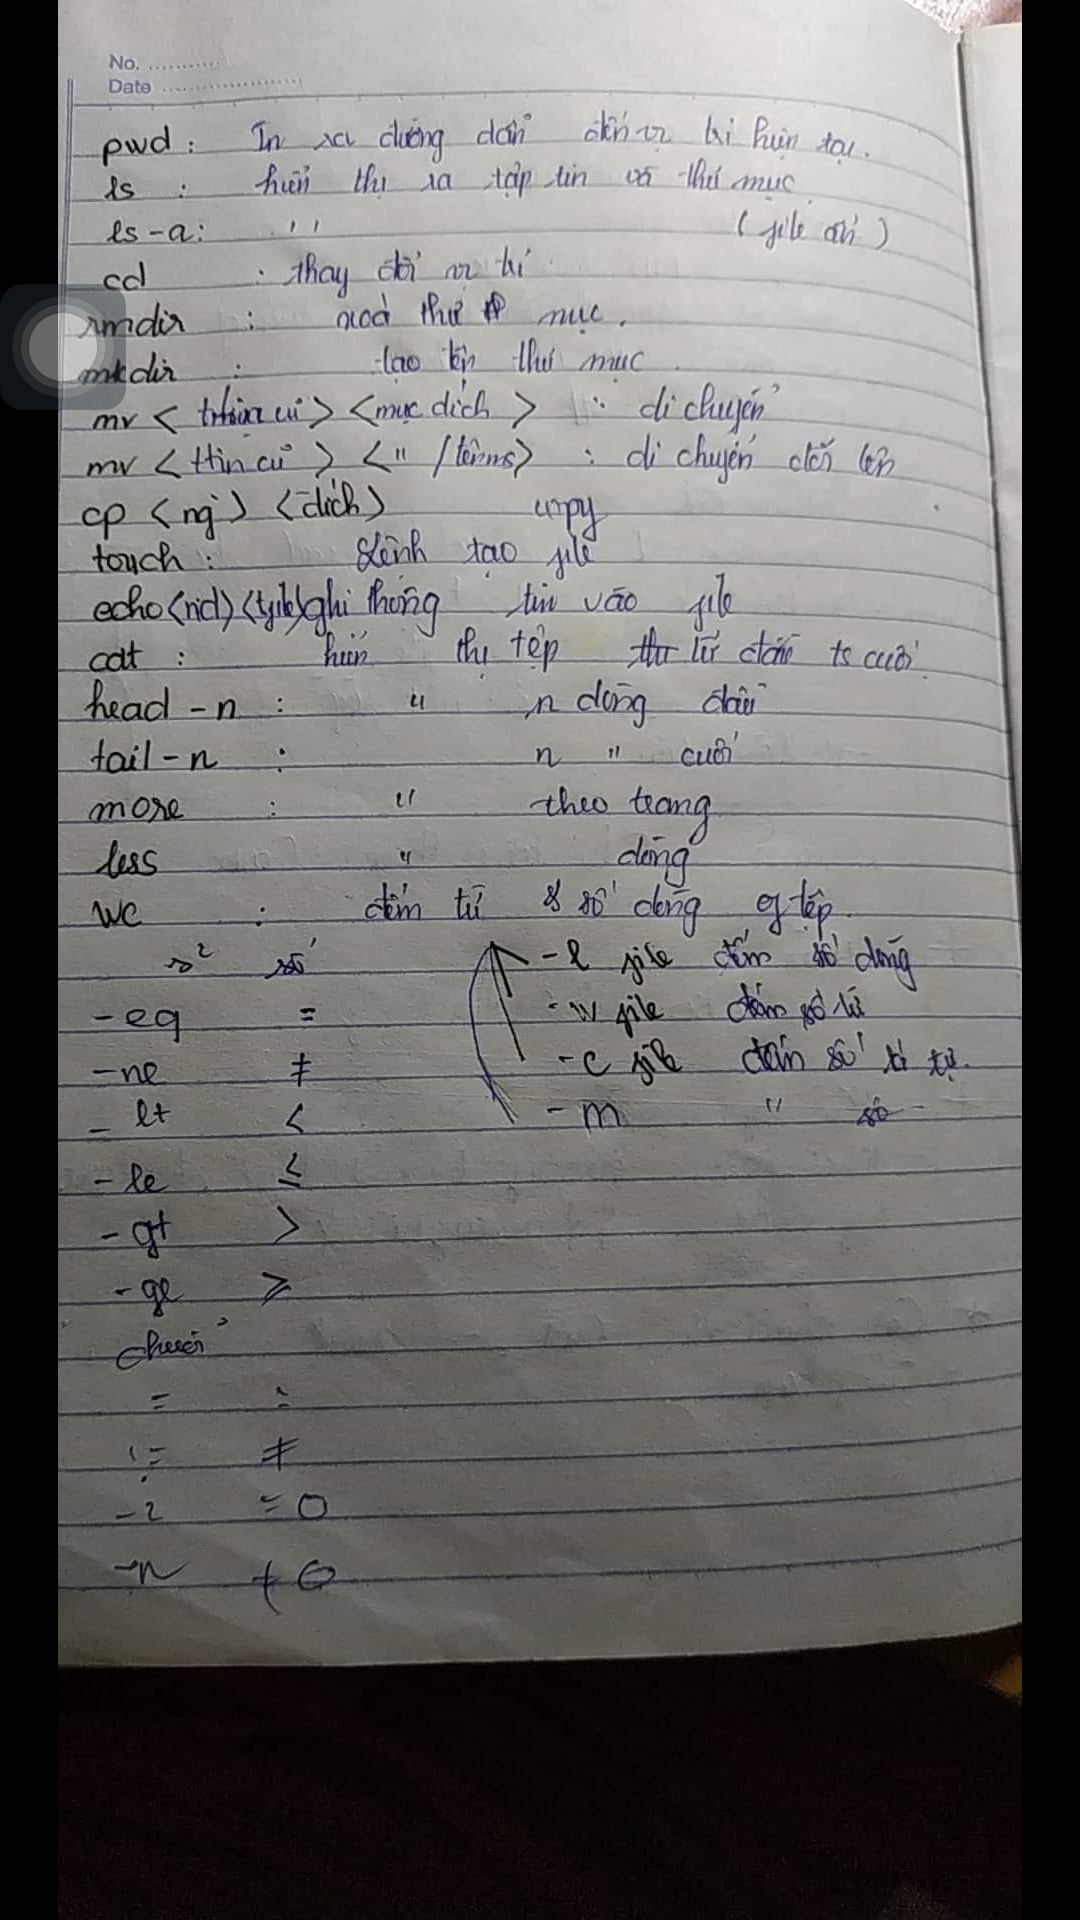 No. ............
Date ........................
pwd : In ra đường dẫn đến vị trí hiện tại.
ls : hiển thị ra tập tin và thư mục
ls -a: " (file ẩn)
cd : thay đổi vị trí
rmdir : xoá thư mục.
mkdir : tạo tên thư mục
mv < > <mục đích> : di chuyển
mv < cũ> <" / > : di chuyển đổi tên
cp <ng> <đích> copy
touch : Lệnh tạo file
echo <nd> <file> ghi thông tin vào file
cat : hiển thị tệp từ đầu ts cuối
head -n : " n dòng đầu
tail -n : n " cuối
more : " theo trang
less " dòng
wc : đếm từ & số dòng of tệp.
s² số
-l file đếm số dòng
-eq =
-w file đếm số từ
-ne ≠
-c file đếm số kí tự.
-lt <
-m " số
-le ≤
-gt >
-ge ≥
chuỗi
= =
!= ≠
-z = 0
-n ≠ 0